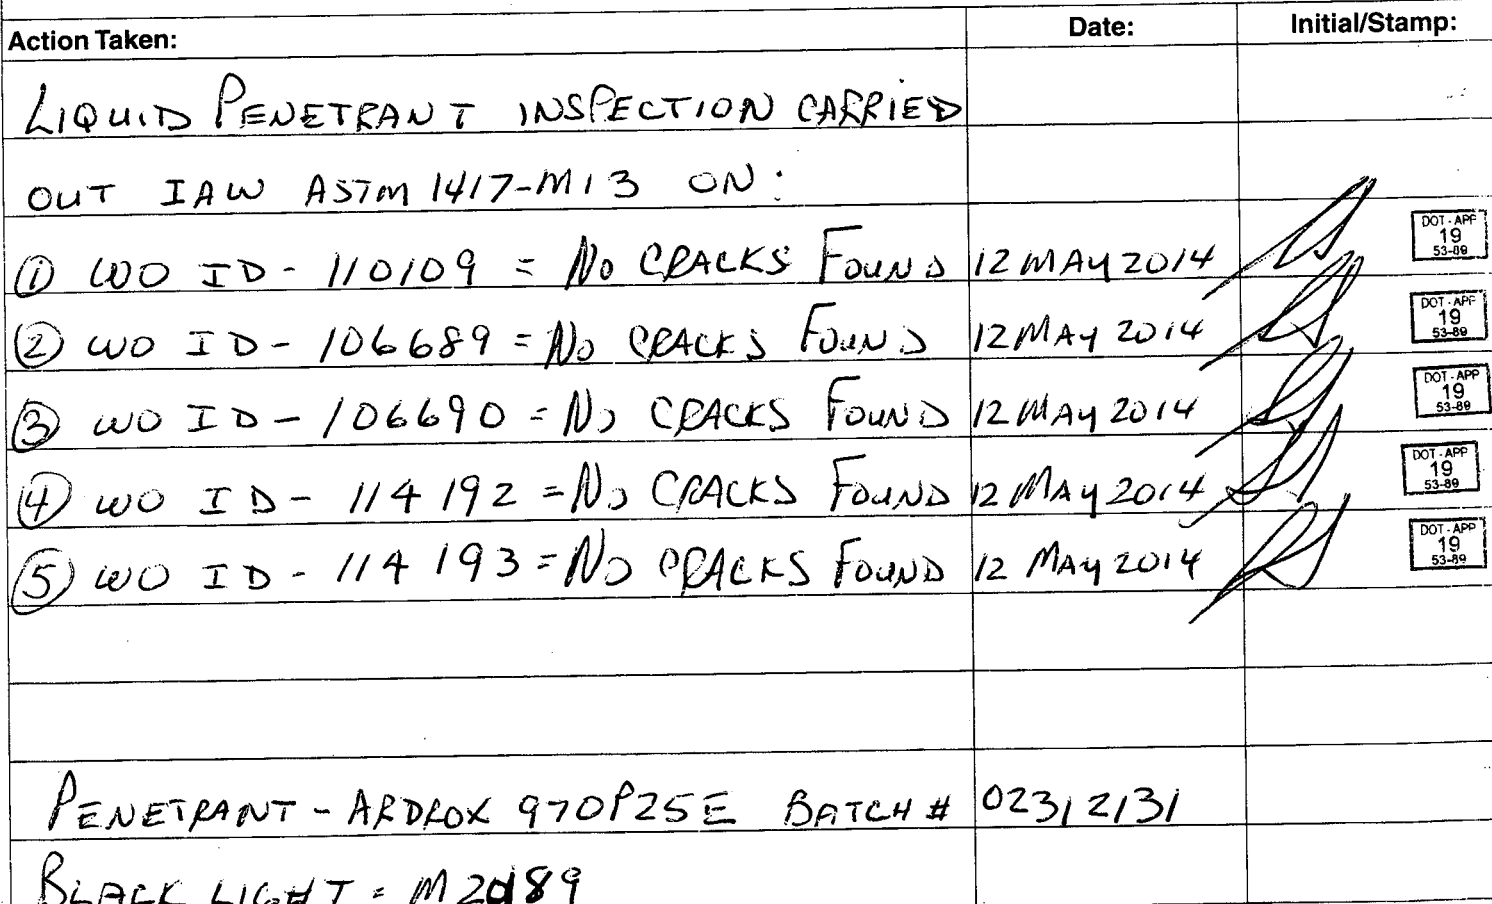 Action Taken: Date: Initial/Stamp:
LIQUID PENETRANT INSPECTION CARRIED
OUT IAW ASTM 1417-M13 ON:
① WO ID - 110109 = No CRACKS FOUND 12 MAY 2014 DOT-APP 19 53-89
② WO ID - 106689 = No CRACKS FOUND 12 MAY 2014 DOT-APP 19 53-89
③ WO ID - 106690 = No CRACKS FOUND 12 MAY 2014 DOT-APP 19 53-89
④ WO ID - 114192 = No CRACKS FOUND 12 MAY 2014 DOT-APP 19 53-89
⑤ WO ID - 114193 = No CRACKS FOUND 12 MAY 2014 DOT-APP 19 53-89
PENETRANT - ARDROX 970P25E BATCH # 02312131
BLACK LIGHT =